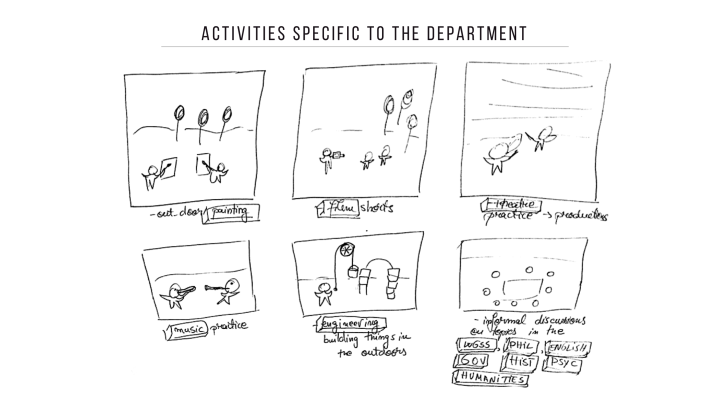 ACTIVITIES SPECIFIC TO THE DEPARTMENT
- out door painting
- film shoots
- theatre
practice → productions
- music practice
- engineering
building things in
the outdoors
- informal discussions
on topics in the
WGSS, PHIL, ENGLISH
GOV HIST PSYC
HUMANITIES